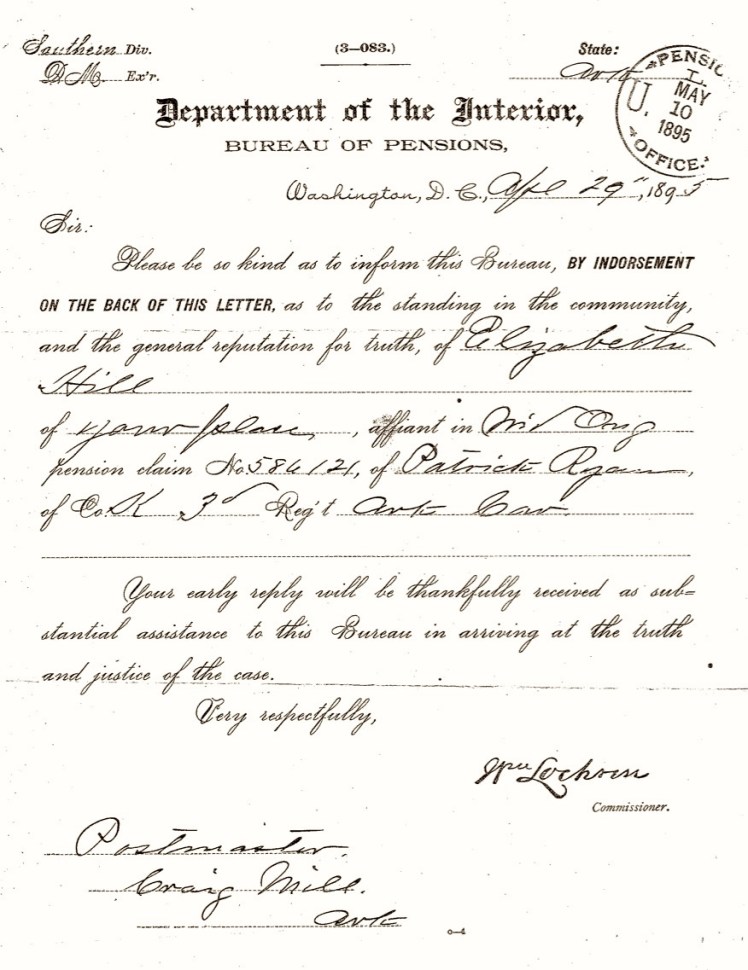 Southern Div.
(3—083.)
State:
D M Ex'r.
Ark
PENSIO
U.
MAY
10
1895
OFFICE.
Department of the Interior,
BUREAU OF PENSIONS,
Washington, D. C., Apl 29", 1895
Sir:
Please be so kind as to inform this Bureau, BY INDORSEMENT
ON THE BACK OF THIS LETTER, as to the standing in the community,
and the general reputation for truth, of Elizabeth
Hill
of your place, , affiant in Orig
pension claim No. 586121, of Patrick Ryan,
of Co. K 3d Reg't Ark Cav.
Your early reply will be thankfully received as sub=
stantial assistance to this Bureau in arriving at the truth
and justice of the case.
Very respectfully,
Wm Lochren
Commissioner.
Postmaster.
Craig Mill.
Ark